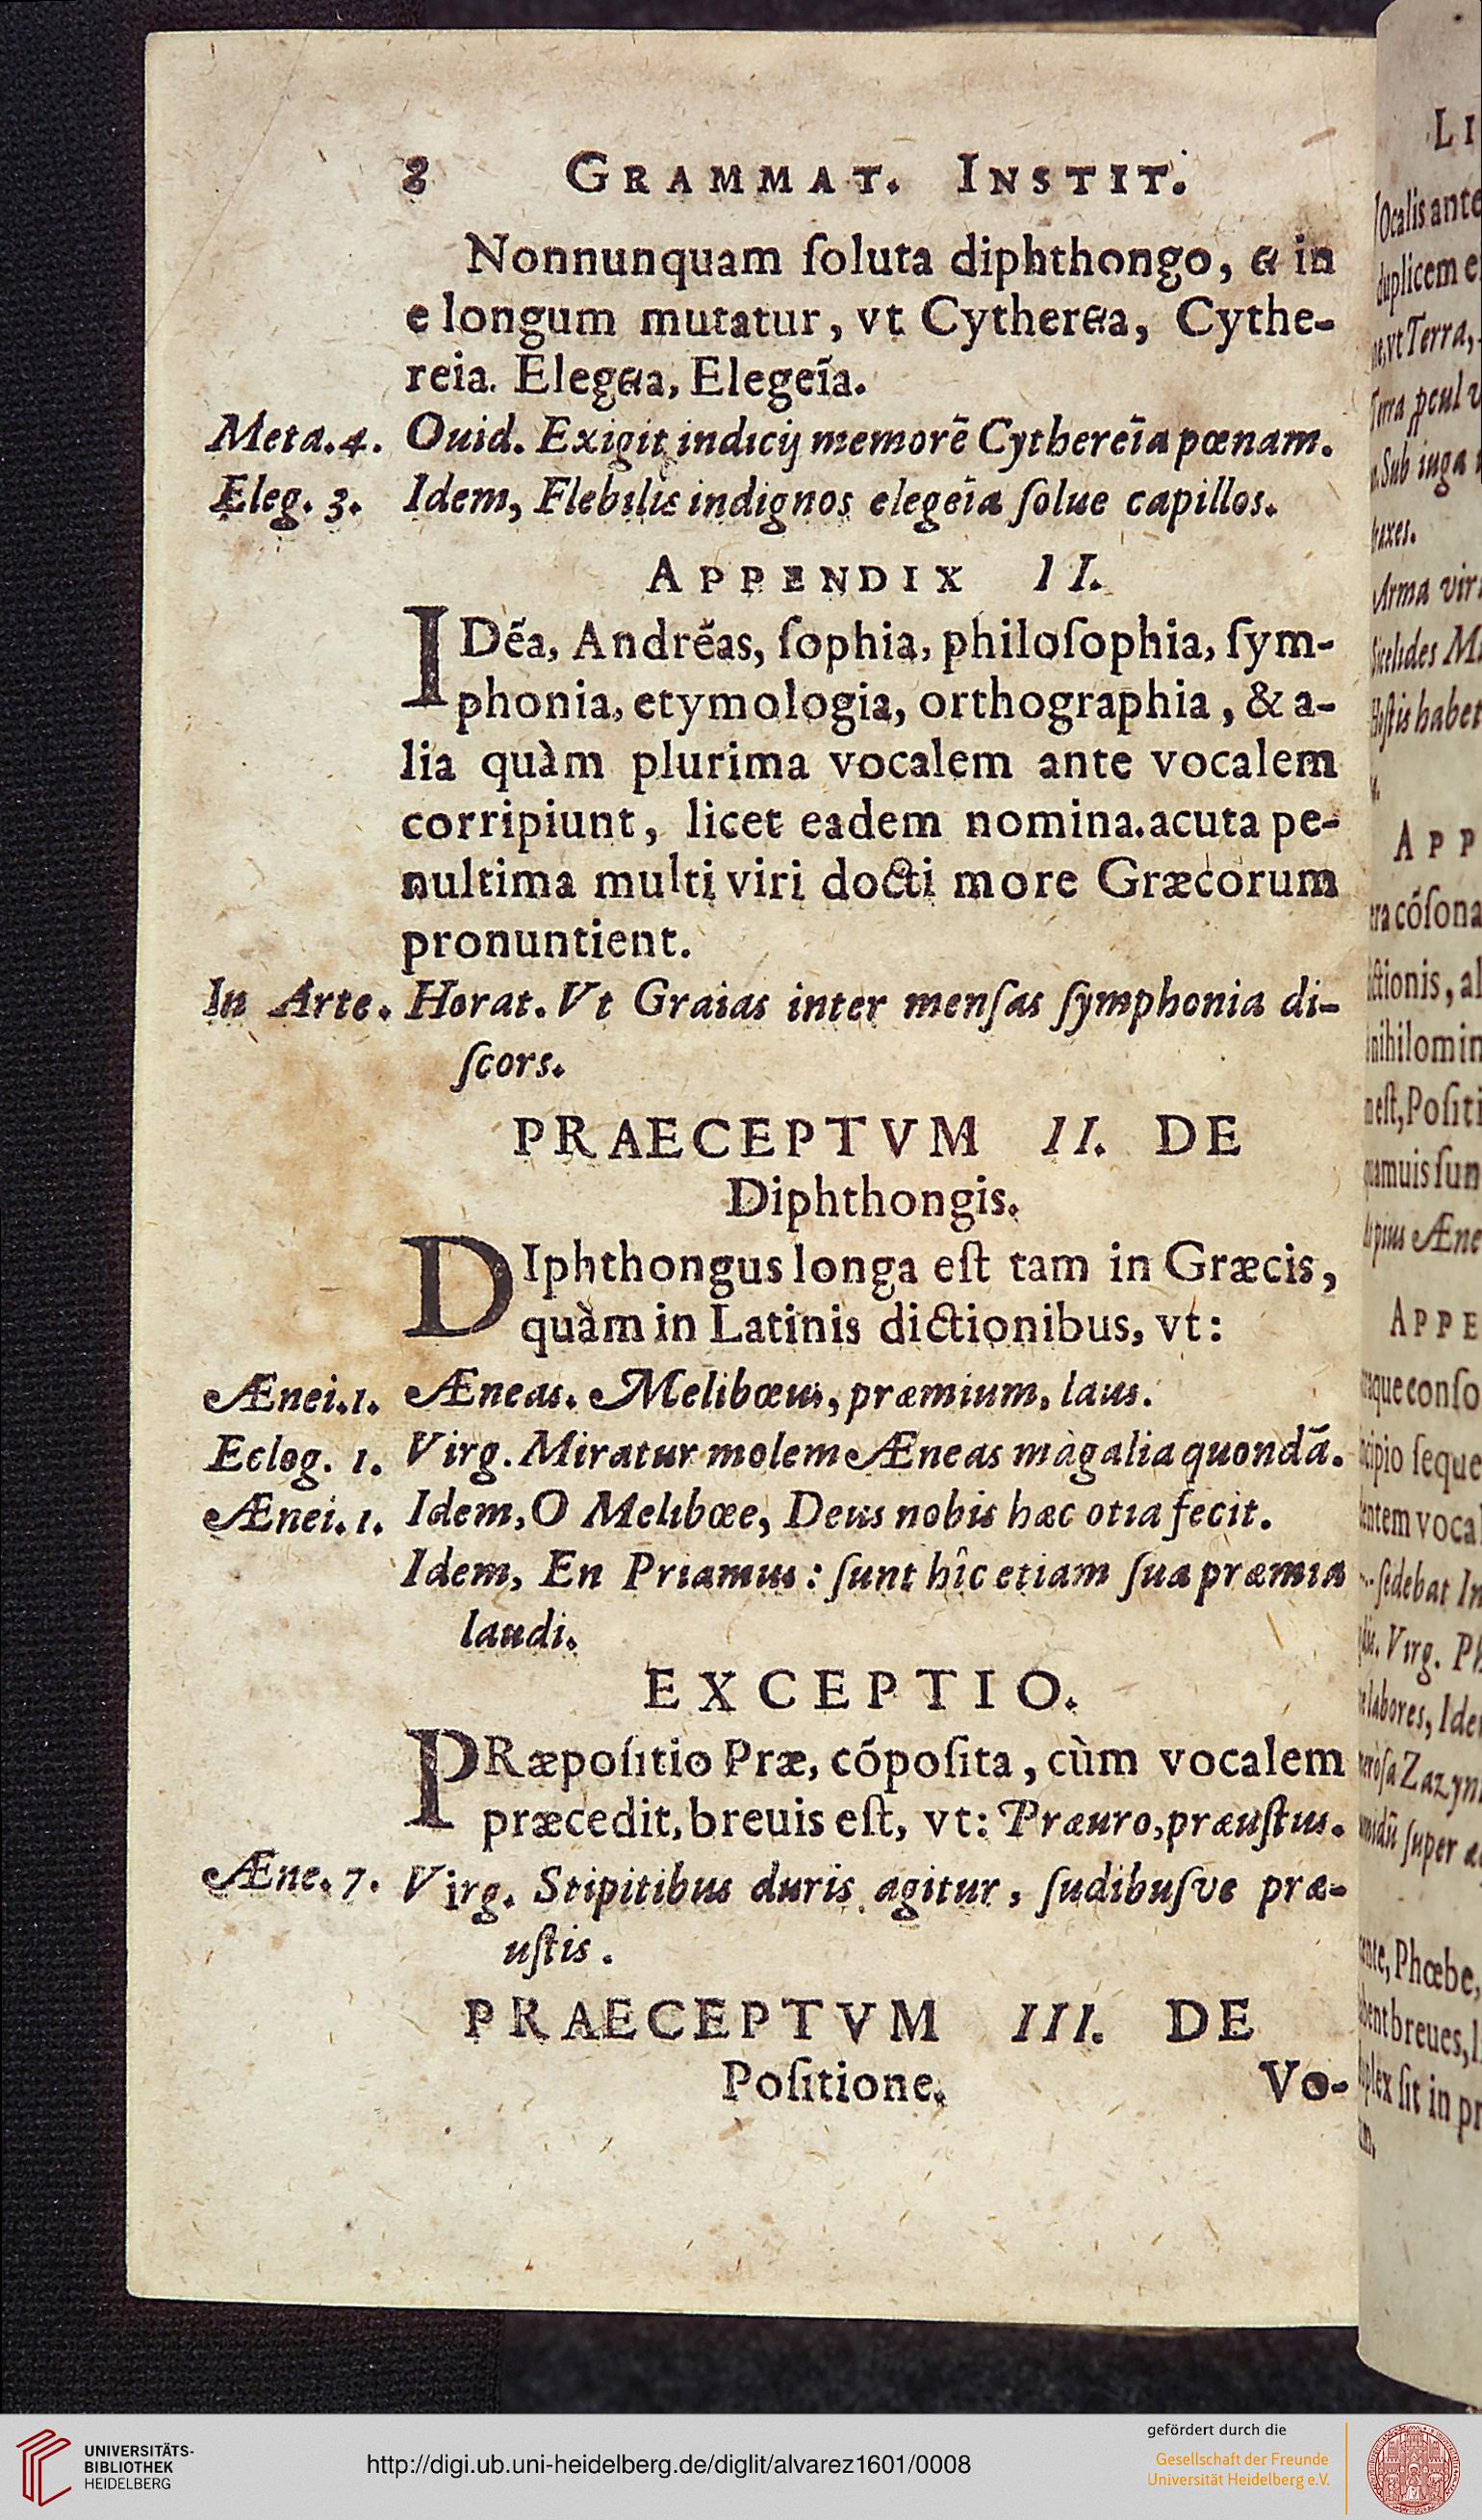 8 GRAMMAT. INSTIT.
Nonnunquam ſoluta diphthongo, ei in
e longum mutatur, vt Cythereia, Cythe-
reia. Elegeia, Elegeïa.
Meta.4. Ouid. Exigit indicij memorẽ Cythereïa pœnam.
Eleg. 3. Idem, Flebilis indignos elegeïa ſolue capillos.
APPENDIX II.
IDẽa, Andrẽas, ſophia, philoſophia, ſym-
phonia, etymologia, orthographia, & a-
lia quàm plurima vocalem ante vocalem
corripiunt, licet eadem nomina.acuta pe-
nultima multi viri docti more Græcorum
pronuntient.
In Arte. Horat. Vt Graias inter menſas ſymphonia di-
ſcors.
PRAECEPTVM II. DE
Diphthongis.
DIphthongus longa eſt tam in Græcis,
quàm in Latinis dictionibus, vt:
Ænei.1. Æneas. Melibœus, præmium, laus.
Eclog. 1. Virg. Miratur molem Æneas màgalia quondã.
Ænei. 1. Idem, O Melibœe, Deus nobis hæc otia fecit.
Idem, En Priamus: ſunt hîc etiam ſua præmia
laudi.
EXCEPTIO.
PRæpoſitio Præ, cópoſita, cùm vocalem
præcedit, breuis eſt, vt: Præuro, præuſtus.
Æne. 7. Virg. Stipitibus duris agitur, ſudibuſve præ-
uſtis.
PRAECEPTVM III. DE
Poſitione. Vo-
UNIVERSITÄTS-
BIBLIOTHEK
HEIDELBERG
http://digi.ub.uni-heidelberg.de/diglit/alvarez1601/0008
gefördert durch die
Gesellschaft der Freunde
Universität Heidelberg e.V.